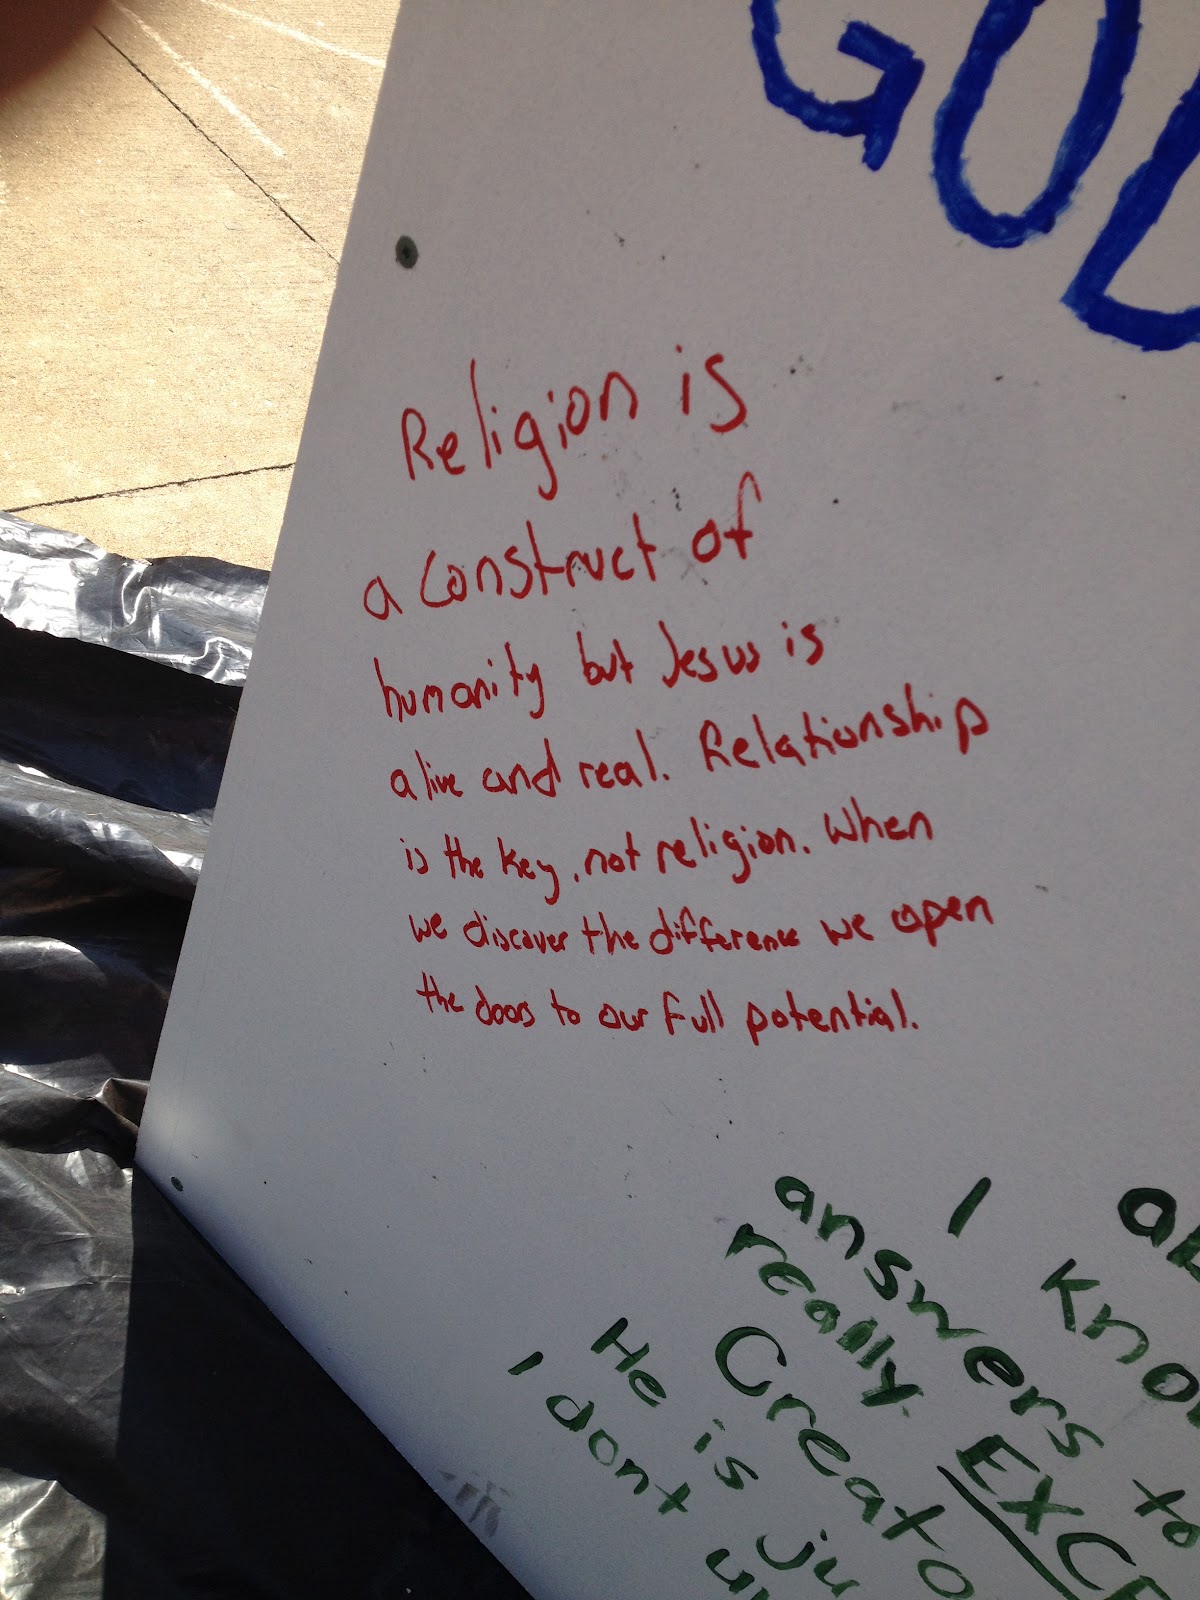 GOD
Religion is
a construct of
humanity but Jesus is
alive and real. Relationship
is the key, not religion. When
we discover the difference we open
the doors to our full potential.
I
answers to
I Know
really EXCE
Creato
He is ju
I dont